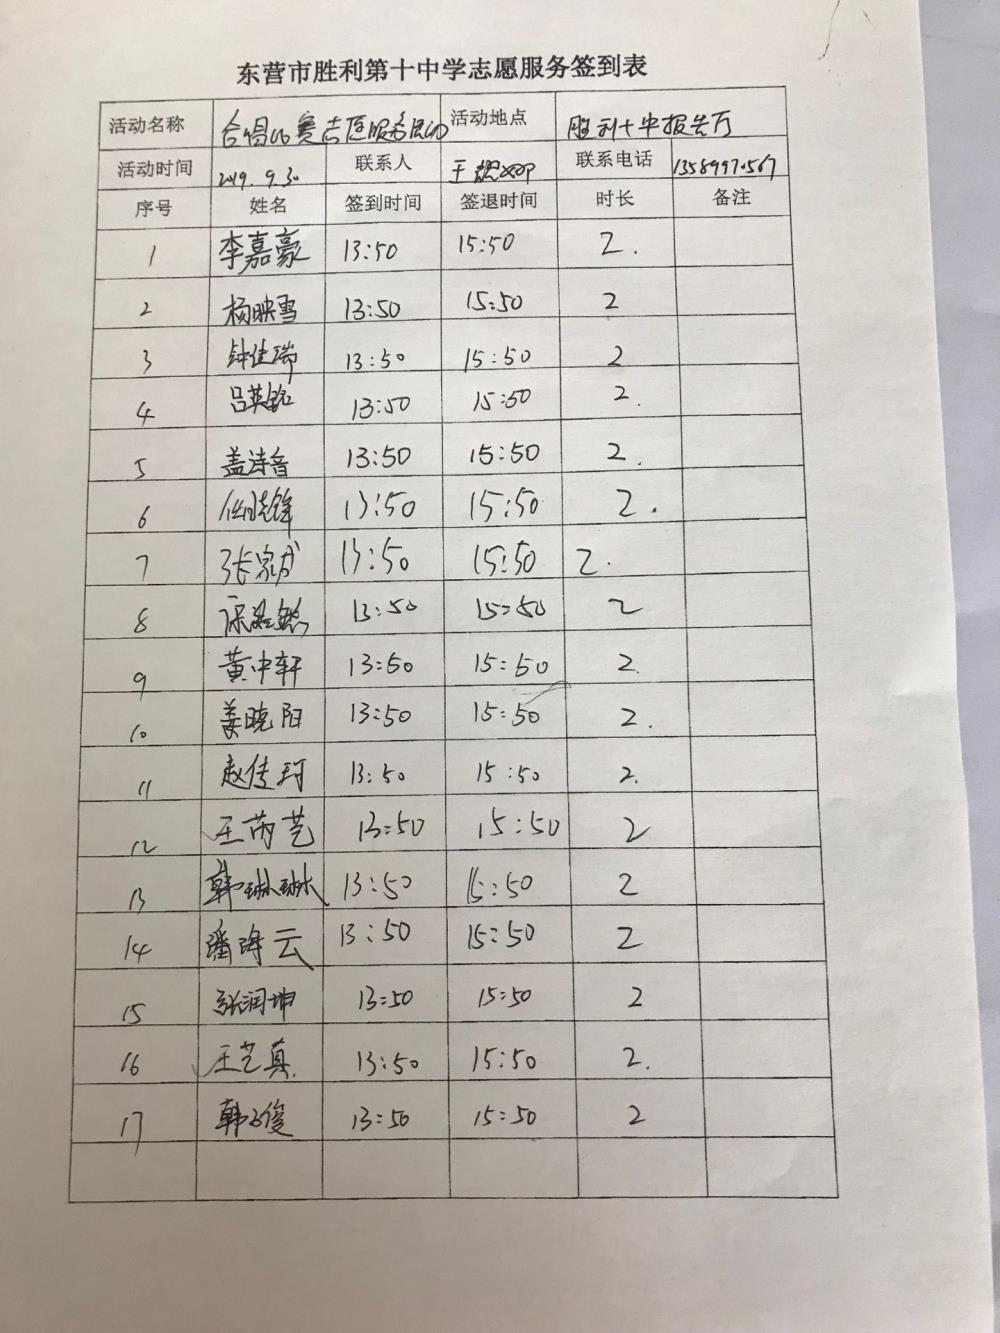 东营市胜利第十中学志愿服务签到表
活动名称 合唱比赛志愿服务活动 活动地点 胜利十中报告厅
活动时间 2019.9.30 联系人 王 联系电话 13589970567
序号 姓名 签到时间 签退时间 时长 备注
1 李嘉豪 13:50 15:50 2.
2 杨映雪 13:50 15:50 2
3 钟佳瑞 13:50 15:50 2
4 吕英铭 13:50 15:50 2.
5 盖诗音 13:50 15:50 2.
6 13:50 15:50 2.
7 13:50 15:50 2.
8 13:50 15:50 2
9 黄中轩 13:50 15:50 2.
10 姜晓阳 13:50 15:50 2.
11 赵佳珂 13:50 15:50 2.
12 王芮艺 13:50 15:50 2
13 韩琳琳 13:50 15:50 2
14 潘云 13:50 15:50 2
15 张润坤 13:50 15:50 2
16 王艺真 13:50 15:50 2.
17 韩子俊 13:50 15:50 2